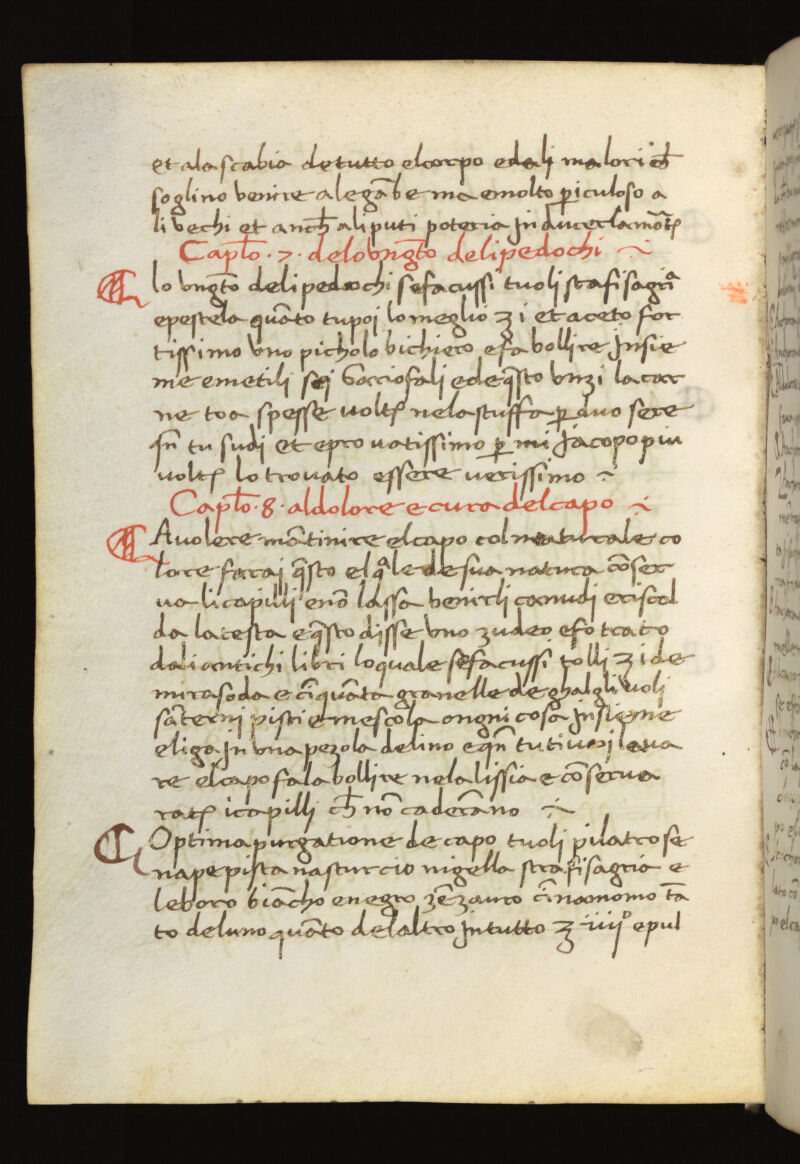 et ala scabia de tutto el corpo e dali malori ch̄
soglino venire a le gābe ma e molto ꝑiculoso a
li vechi et anch̄ ali puti poteria Inducerla mōrt
Capłō · 7 · de lo vngtō deli pedochi
lo vngtō deli pedochi se fa cussi tuoli stafisagria
e pestela quāto tu poi lo meglio ʒ i et aceto for
tissimo vno picholo bichiero e fa bollire Insie
me e metili sei Garriofali e de q̄sto vnzi la car
ne toa spesse volte nela stuffa ꝑ duo sere
q̄n tu sudi et e provatissimo ꝑ mi Jacopo piu
volte lo trovato essere verissimo
Capłō · 8 · al dolore e cura del capo
A volere mātinire el capo col naturale co
lore farai q̄sto el q̄le de sua natura cōser
va li capilli e nō lassa venirli canudi e riscal
da la testa e q̄sto disse vno zudeo e fo trato
dali antichi libri lo quale se fa cussi tolli ʒ i de
mirasoda e cīquāta granelle de ghalgli voli
sāterni pisti e mescola ongni cosa Insieme
e liga In vna pezola de lino e q̄n tu ti voi lava
re el capo fala bollire nela lissia e cōserva
rate i capilli ch̄ nō caderāno
Optima purgatione de capo tuoli pilatro se
nape pista nasturcio nigella strafisagria e
leboro biācho e negro zēzauro cīnamomo tā
to de luno quāto de laltro In tutto ʒ iiijº e pul